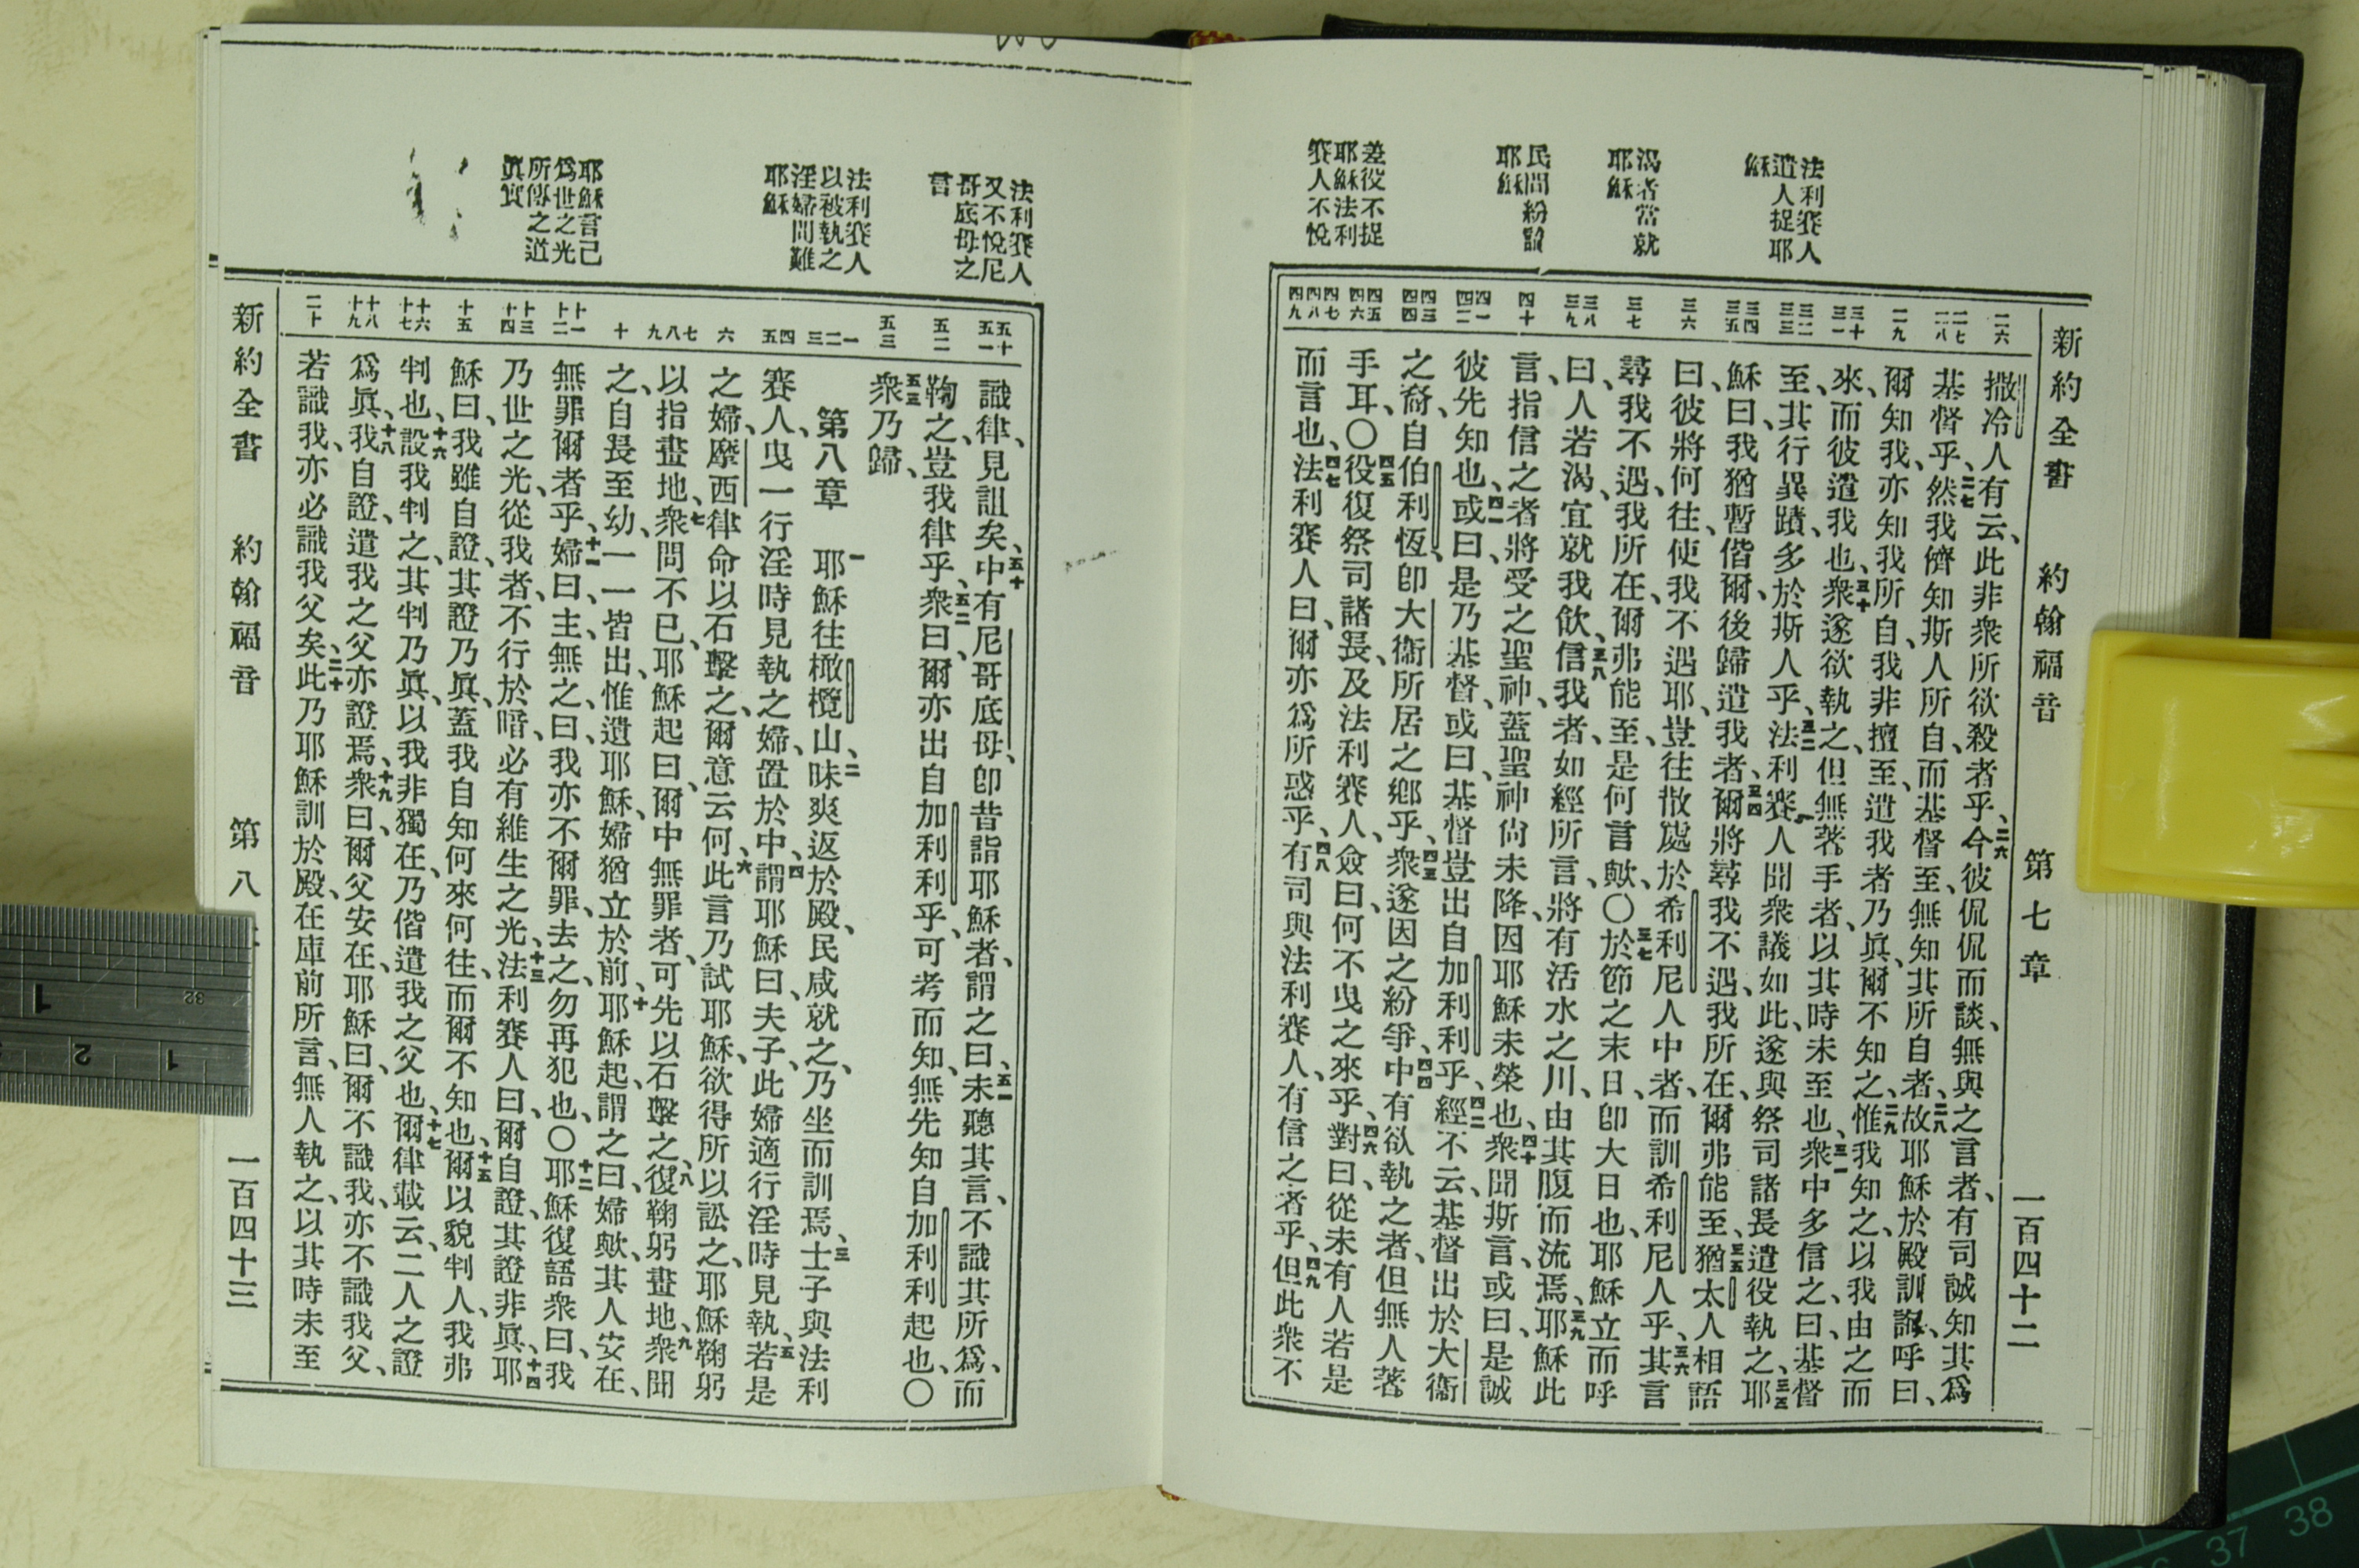 新約全書 約翰福音 第七章 一百四十二
法利賽人
遣人捉耶
穌
渴者當就
耶穌
民間紛論
耶穌
差役不捉
耶穌法利
賽人不悅
二六 二七 二八 二九 三十 三一 三二 三三 三四 三五 三六 三七 三八 三九 四十 四一 四二 四三 四四 四五 四六 四七 四八 四九
撒冷人有云、此非衆所欲殺者乎、二六今彼侃侃而談、無與之言者、有司誠知其爲
基督乎、二七然我儕知斯人所自、而基督至、無知其所自者、二八故耶穌於殿訓誨、呼曰、
爾知我、亦知我所自、我非擅至、遣我者乃眞、爾不知之、二九惟我知之、以我由之而
來、而彼遣我也、三十衆遂欲執之、但無著手者、以其時未至也、三一衆中多信之、曰、基督
至、其行異蹟、多於斯人乎、三二法利賽人聞衆議如此、遂與祭司諸長遣役執之、三三耶
穌曰、我猶暫偕爾、後歸遣我者、三四爾將尋我不遇、我所在、爾弗能至、三五猶太人相語
曰、彼將何往、使我不遇耶、豈往散處於希利尼人中者、而訓希利尼人乎、三六其言
尋我不遇、我所在、爾弗能至、是何言歟、〇三七於節之末日、卽大日也、耶穌立而呼
曰、人若渴、宜就我飲、三八信我者、如經所言、將有活水之川、由其腹而流焉、三九耶穌此
言、指信之者將受之聖神、蓋聖神尙未降、因耶穌未榮也、四十衆聞斯言、或曰、是誠
彼先知也、四一或曰、是乃基督、或曰、基督豈出自加利利乎、四二經不云、基督出於大衞
之裔、自伯利恆、卽大衞所居之鄕乎、四三衆遂因之紛爭、四四中有欲執之者、但無人著
手耳、〇四五役復祭司諸長、及法利賽人、僉曰、何不曳之來乎、四六對曰、從未有人若是
而言也、四七法利賽人曰、爾亦爲所惑乎、四八有司與法利賽人、有信之者乎、四九但此衆不
法利賽人
又不悅尼
哥底母之
言
法利賽人
以被執之
淫婦問難
耶穌
耶穌言己
爲世之光
所傳之道
眞實
五十 五一 五二 五三 一 二 三 四 五 六 七 八 九 十 十一 十二 十三 十四 十五 十六 十七 十八 十九 二十
識律、見詛矣、五十中有尼哥底母、卽昔詣耶穌者、謂之曰、五一未聽其言、不識其所爲、而
鞫之、豈我律乎、五二衆曰、爾亦出自加利利乎、可考而知、無先知自加利利起也、〇
五三衆乃歸、
第八章 一耶穌往橄欖山、二昧爽返於殿、民咸就之、乃坐而訓焉、三士子與法利
賽人、曳一行淫時見執之婦、置於中、四謂耶穌曰、夫子、此婦適行淫時見執、五若是
之婦、摩西律命以石擊之、爾意云何、六此言乃試耶穌、欲得所以訟之、耶穌鞠躬
以指畫地、七衆問不已、耶穌起曰、爾中無罪者、可先以石擊之、八復鞠躬畫地、九衆聞
之、自長至幼、一一皆出、惟遺耶穌、婦猶立於前、十耶穌起、謂之曰、婦歟、其人安在、
無罪爾者乎、十一婦曰、主、無之、曰、我亦不爾罪、去之、勿再犯也、〇十二耶穌復語衆曰、我
乃世之光、從我者、不行於暗、必有維生之光、十三法利賽人曰、爾自證、其證非眞、十四耶
穌曰、我雖自證、其證乃眞、蓋我自知何來何往、而爾不知也、十五爾以貌判人、我弗
判也、十六設我判之、其判乃眞、以我非獨在、乃偕遣我之父也、十七爾律載云、二人之證
爲眞、十八我自證、遣我之父亦證焉、十九衆曰、爾父安在、耶穌曰、爾不識我、亦不識我父、
若識我、亦必識我父矣、二十此乃耶穌訓於殿、在庫前所言、無人執之、以其時未至
新約全書 約翰福音 第八 一百四十三
1
32
2
1
37 38